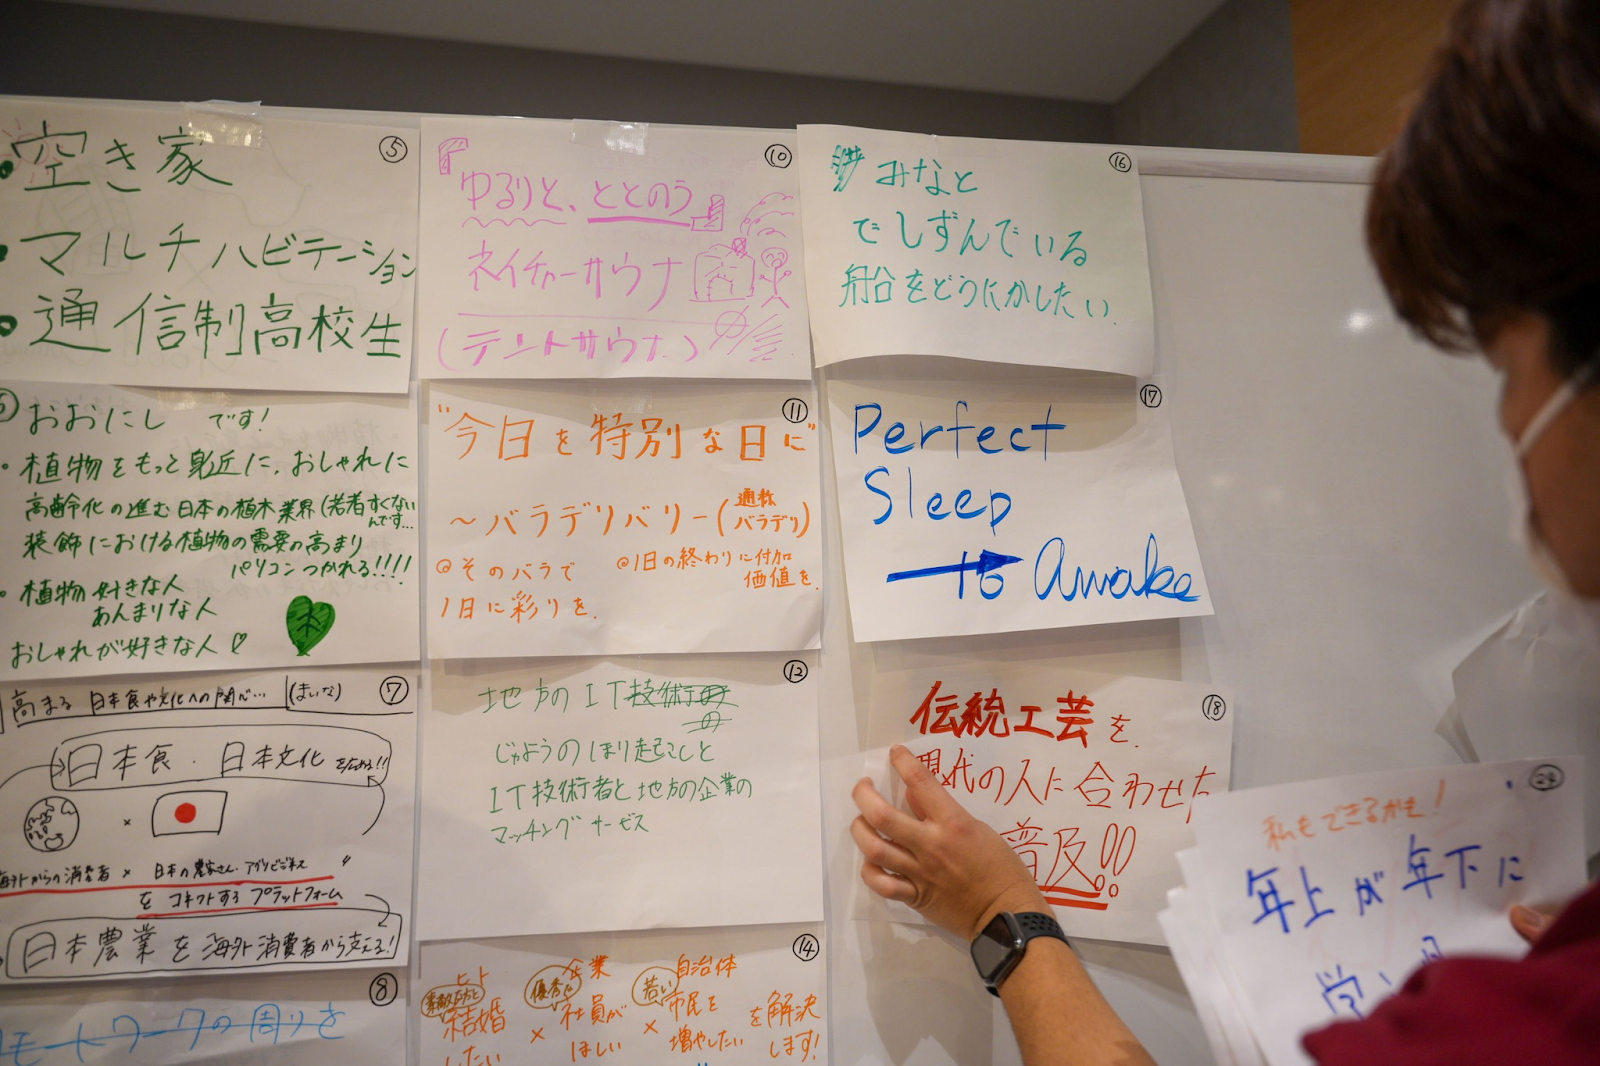 ⑤
・空き家
・マルチハビテーション
・通信制高校生
おおにし です!
・植物をもっと身近に、おしゃれに
高齢化の進む日本の植木業界(若者すくないんです…
装飾における植物の需要の高まり
パソコンつかれる!!!!
・植物好きな人
あんまりな人
おしゃれが好きな人♡
⑦
高まる 日本食や文化への関心… (まいな)
日本食・日本文化を広める!!
×
海外からの消費者 × 日本の農家さん・アグリビジネス
をコネクトする プラットフォーム
日本農業を海外消費者から支える!
⑧
リモートワークの周りを
⑩
ゆるりと、ととのう
ネイチャーサウナ
(テントサウナ)
⑪
"今日を特別な日に"
~バラデリバリー(通称バラデリ)
@そのバラで
1日に彩りを.
@1日の終わりに付加
価値を.
⑫
地方のIT技術
の
じゅようのほり起こしと
IT技術者と地方の企業の
マッチングサービス
⑭
ヒト 企業 自治体
素敵な方と 優秀な 若い
結婚 × 社員が × 市民を を解決
したい ほしい 増やしたい します!
⑯
みなと
でしずんでいる
船をどうにかしたい.
⑰
Perfect
Sleep
to Awake
⑱
伝統工芸を.
現代の人に合わせた
普及!!
私もできるかも!
年上が年下に
学